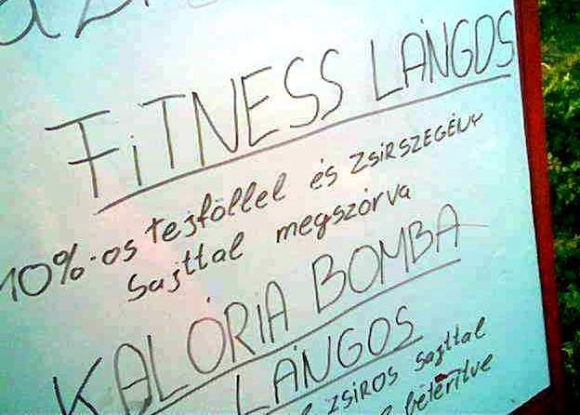 FITNESS LÁNGOS
10%-os tejföllel és ZSÍRSZEGÉNY
sajttal megszórva
KALÓRIA BOMBA
LÁNGOS
ZSÍROS sajttal
beterítve